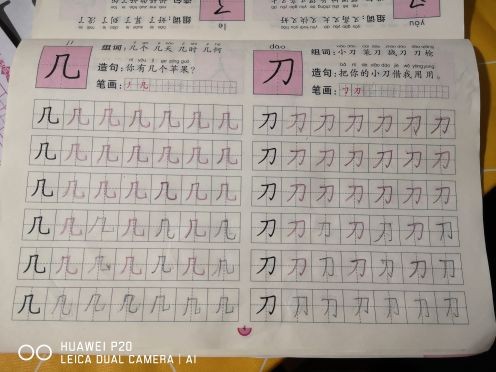 jǐ
几
组词:几不 几天 几时 几何
造句:你有几个苹果?
笔画:丿 几
几 几 几 几 几 几 几
几 几 几 几 几 几 几
几 几 几 几 几 几 几
几 几 几 几 几 几 几
几 几 几 几 几 几 几
几 几 几 几 几 几 几
dāo
刀
组词:小刀 菜刀 战刀 刀枪
造句:把你的小刀借我用用。
笔画:㇆ 刀
刀 刀 刀 刀 刀 刀 刀
刀 刀 刀 刀 刀 刀 刀
刀 刀 刀 刀 刀 刀 刀
刀 刀 刀 刀 刀 刀 刀
刀 刀 刀 刀 刀 刀 刀
刀 刀 刀 刀 刀 刀 刀
HUAWEI P20
LEICA DUAL CAMERA | AI